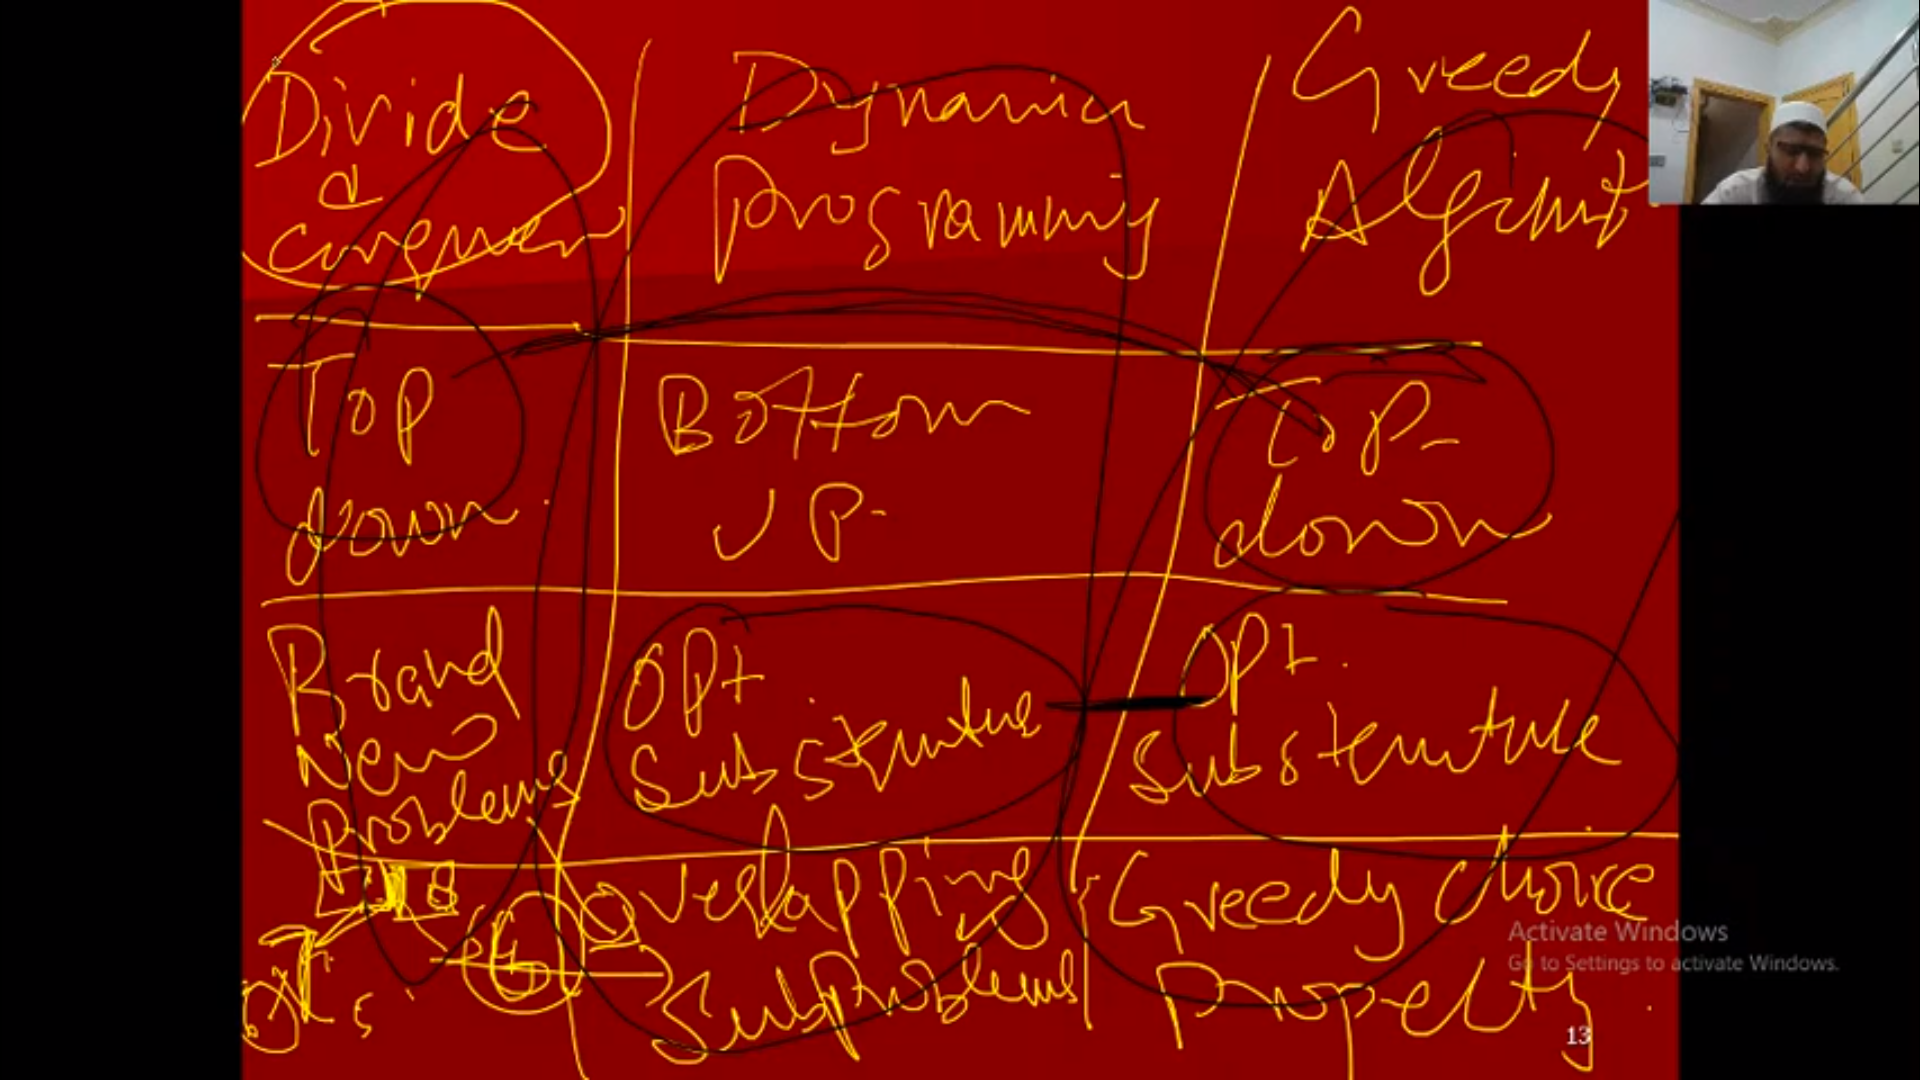 Divide
&
Conquer
Dynamic
Programming
Greedy
Top
down.
Bottom
UP-
Top-
down
Brand
New
Problems
Opt
Substructure
Opt.
Substructure
Overlapping
SubProblems
Greedy choice
Property
Activate Windows
Go to Settings to activate Windows.
13